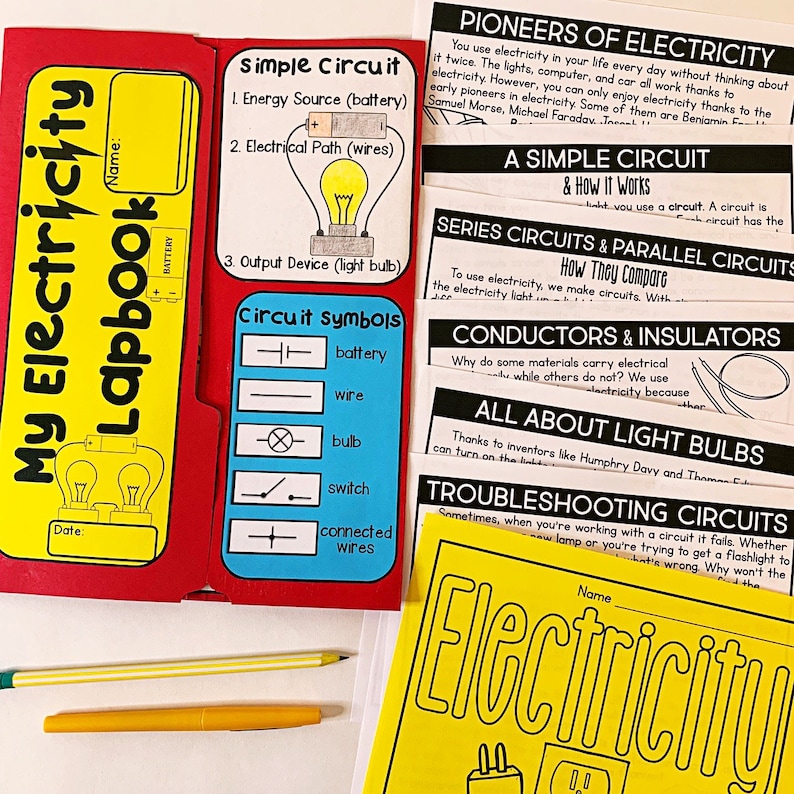 My Electricity
Lapbook
Name:
BATTERY
+
-
Date:
Simple Circuit
1. Energy Source (battery)
+ -
2. Electrical Path (wires)
3. Output Device (light bulb)
Circuit Symbols
battery
wire
bulb
switch
connected
wires
PIONEERS OF ELECTRICITY
You use electricity in your life every day without thinking about
it twice. The lights, computer, and car all work thanks to
electricity. However, you can only enjoy electricity thanks to the
early pioneers in electricity. Some of them are Benjamin
Samuel Morse, Michael Faraday, Joseph
A SIMPLE CIRCUIT
& How it Works
light, you use a circuit. A circuit is
circuit has the
SERIES CIRCUITS & PARALLEL CIRCUITS
How They Compare
To use electricity, we make circuits. With
the electricity light up a
CONDUCTORS & INSULATORS
Why do some materials carry electrical
while others do not? We use
electricity because
ALL ABOUT LIGHT BULBS
Thanks to inventors like Humphry Davy and Thomas
can turn on the lights
TROUBLESHOOTING CIRCUITS
Sometimes, when you're working with a circuit it fails. Whether
new lamp or you're trying to get a flashlight to
what's wrong. Why won't the
find the
Name
Electricity